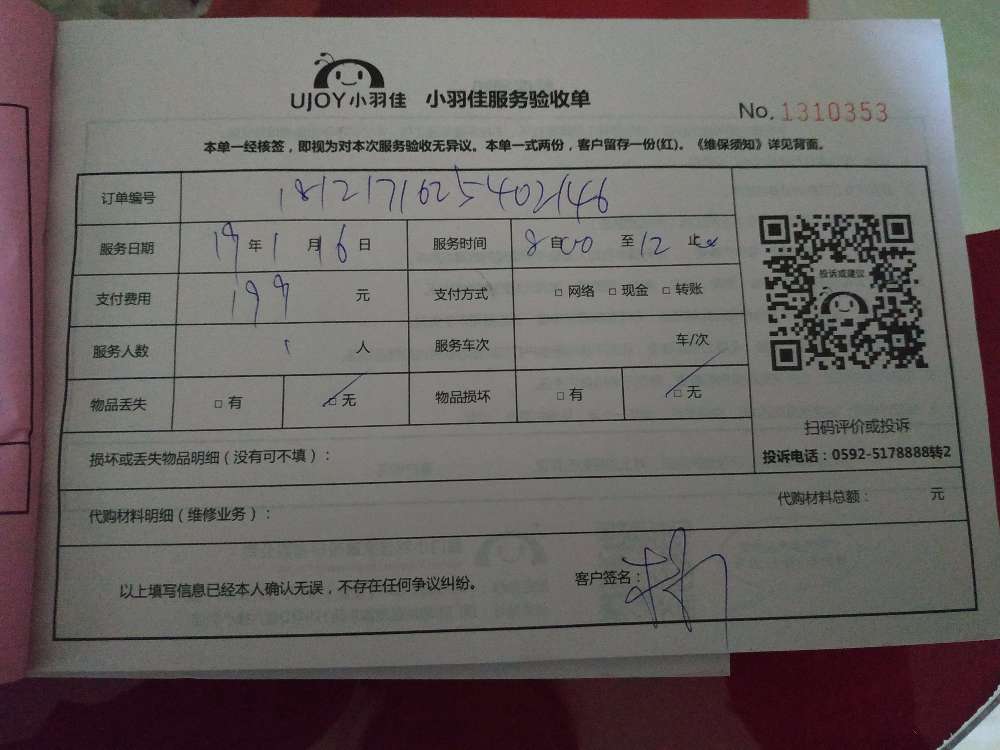 UJOY小羽佳 小羽佳服务验收单
No. 1310353
本单一经核签，即视为对本次服务验收无异议。本单一式两份，客户留存一份(红)。《维保须知》详见背面。
订单编号 1812171625402146
服务日期 19年1月16日 服务时间 自8:00至12止
支付费用 199元 支付方式 □网络 □现金 □转账
投诉或建议
服务人数 1人 服务车次 车/次
物品丢失 □有 □无 物品损坏 □有 □无
扫码评价或投诉
投诉电话：0592-5178888转2
损坏或丢失物品明细（没有可不填）：
代购材料明细（维修业务）： 代购材料总额： 元
以上填写信息已经本人确认无误，不存在任何争议纠纷。 客户签名：